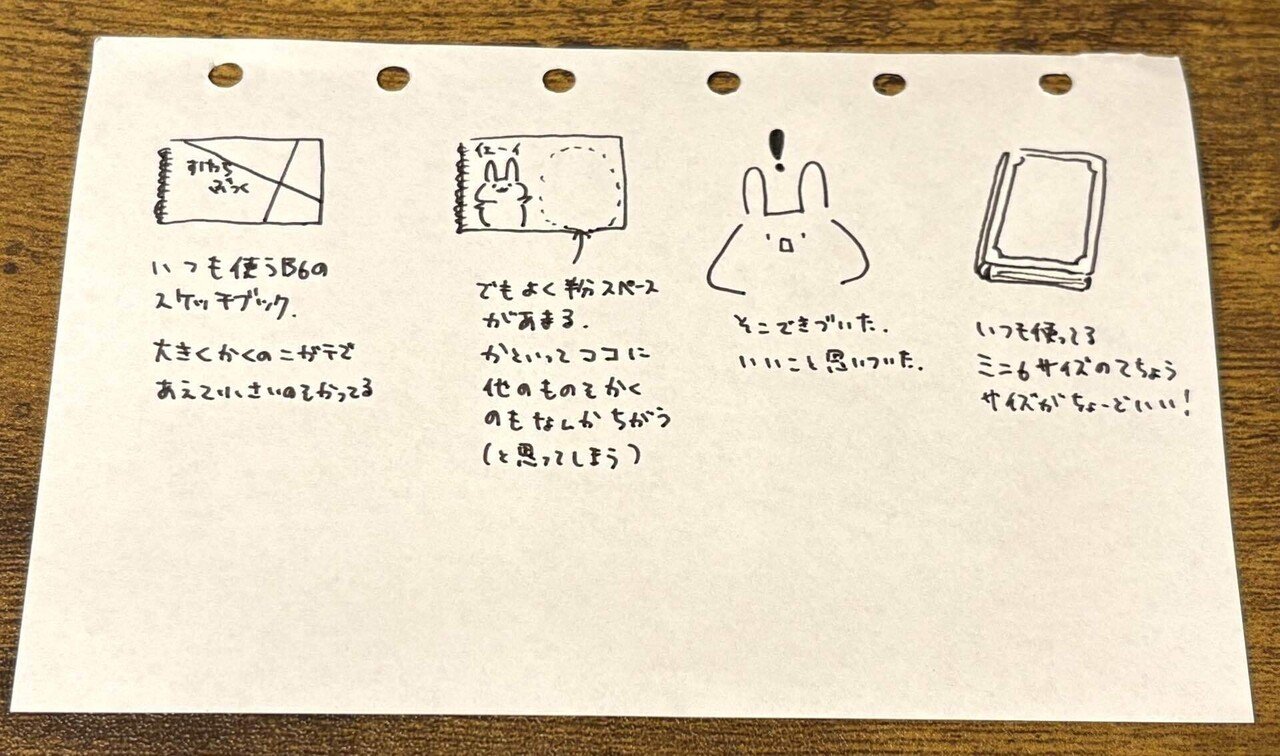 すけっち
ぶっく
いつも使うB6の
スケッチブック.
大きくかくのニガテで
あえて小さいのをかってる
イェーイ
でもよく半分スペース
があまる.
かといってココに
他のものをかく
のもなんかちがう
(と思ってしまう)
!
そこできづいた.
いいこと思いついた.
いつも使ってる
ミニ6サイズのてちょう
サイズがちょーどいい!